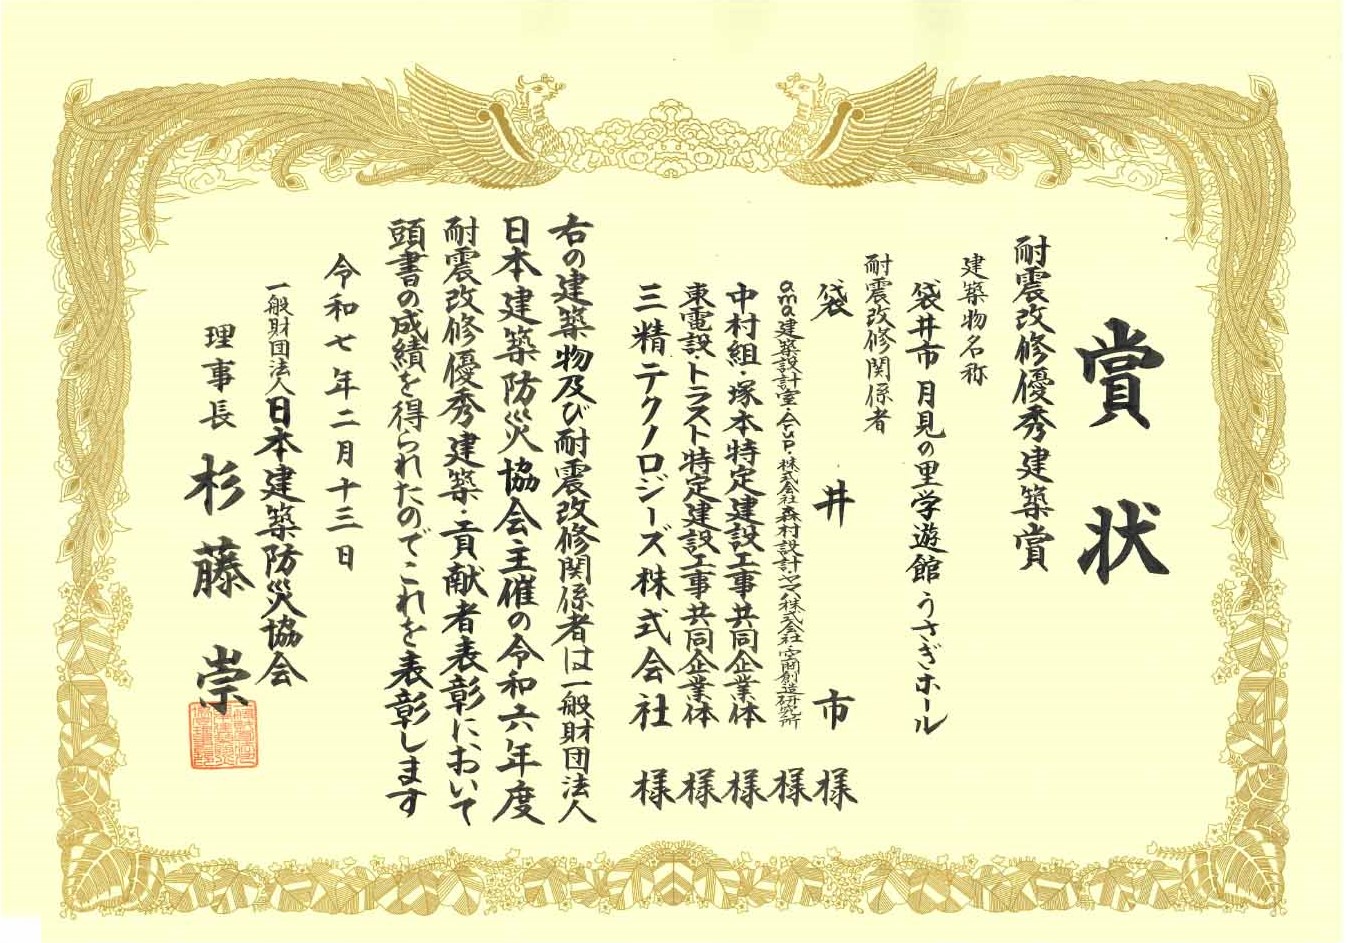 賞状
耐震改修優秀建築賞
建築物名称
袋井市月見の里学遊館うさぎホール
耐震改修関係者
袋井市様
ama建築設計室・会・株式会社森村設計・ヤマハ株式会社空間創造研究所様
中村組・塚本特定建設工事共同企業体様
東電設・トラスト特定建設工事共同企業体様
三精テクノロジーズ株式会社様
右の建築物及び耐震改修関係者は一般財団法人
日本建築防災協会主催の令和六年度
耐震改修優秀建築・貢献者表彰において
頭書の成績を得られたのでこれを表彰します
令和七年二月十三日
一般財団法人日本建築防災協会
理事長杉藤崇